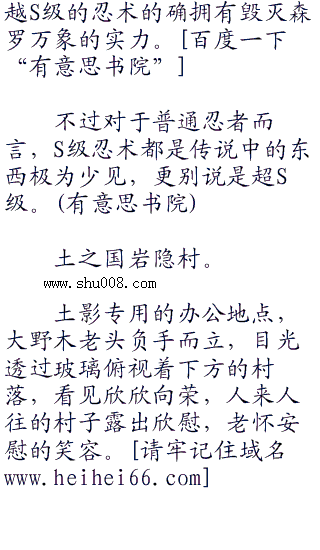 越S级的忍术的确拥有毁灭森
罗万象的实力。[百度一下
“有意思书院”]
不过对于普通忍者而
言，S级忍术都是传说中的东
西极为少见，更别说是超S
级。(有意思书院)
土之国岩隐村。
www.shu008.com
土影专用的办公地点，
大野木老头负手而立，目光
透过玻璃俯视着下方的村
落，看见欣欣向荣，人来人
往的村子露出欣慰，老怀安
慰的笑容。[请牢记住域名
www.heihei66.com]